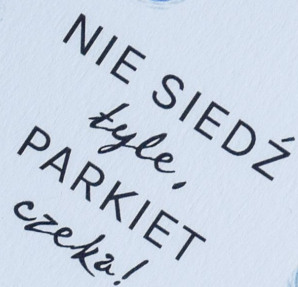 NIE SIEDŹ
tyle,
PARKIET
czeka!